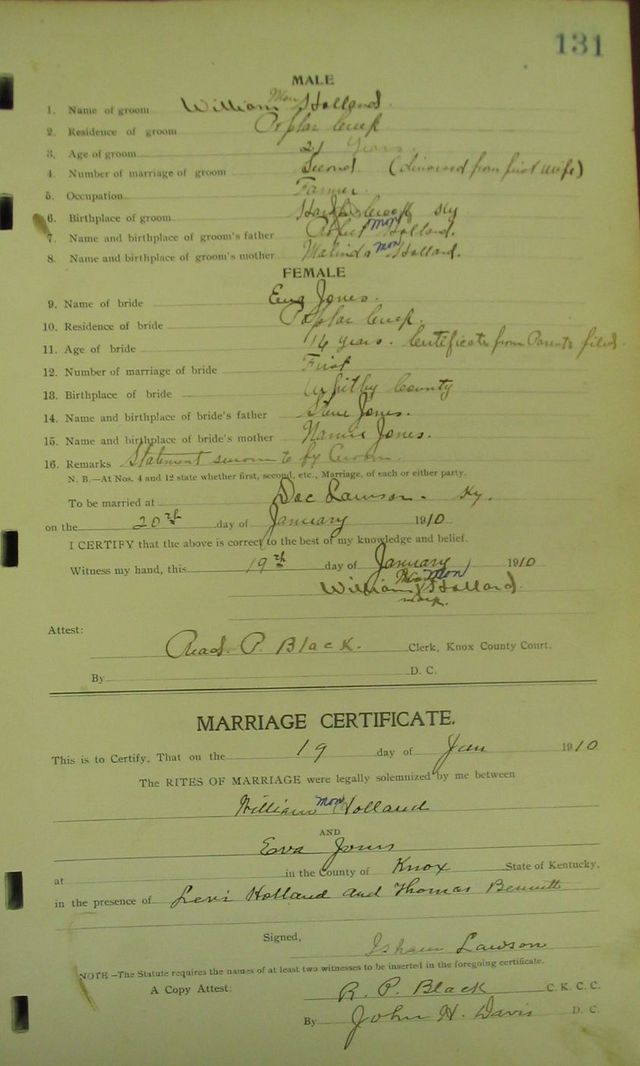 131
MALE
1. Name of groom William Mon Holland.
2. Residence of groom Poplar Creek
3. Age of groom 21 Years.
4. Number of marriage of groom Second (divorced from first wife)
5. Occupation Farmer.
6. Birthplace of groom Ky
7. Name and birthplace of groom's father Mon Holland.
8. Name and birthplace of groom's mother Malinda Mon Holland.
FEMALE
9. Name of bride Eva Jones.
10. Residence of bride Poplar Creek.
11. Age of bride 14 years. Certificate from Parents filed.
12. Number of marriage of bride First
13. Birthplace of bride Whitley County
14. Name and birthplace of bride's father Steve Jones.
15. Name and birthplace of bride's mother Nannie Jones.
16. Remarks Statement sworn to by Groom.
N. B.—At Nos. 4 and 12 state whether first, second, etc., Marriage, of each or either party.
To be married at Doc Lawson. Ky.
on the 20th day of January 1910
I CERTIFY that the above is correct to the best of my knowledge and belief.
Witness my hand, this 19th day of January 1910
William his X mark Mon Holland
Attest:
Read. P. Black. Clerk, Knox County Court.
By D. C.
MARRIAGE CERTIFICATE.
This is to Certify, That on the 19 day of Jan 1910
The RITES OF MARRIAGE were legally solemnized by me between
William Mon Holland
AND
Eva Jones
at in the County of Knox State of Kentucky,
in the presence of Levi Holland and Thomas Bennett
Signed,
Isham Lawson
NOTE—The Statute requires the names of at least two witnesses to be inserted in the foregoing certificate.
A Copy Attest: R. P. Black C. K. C. C.
By John H. Davis D. C.